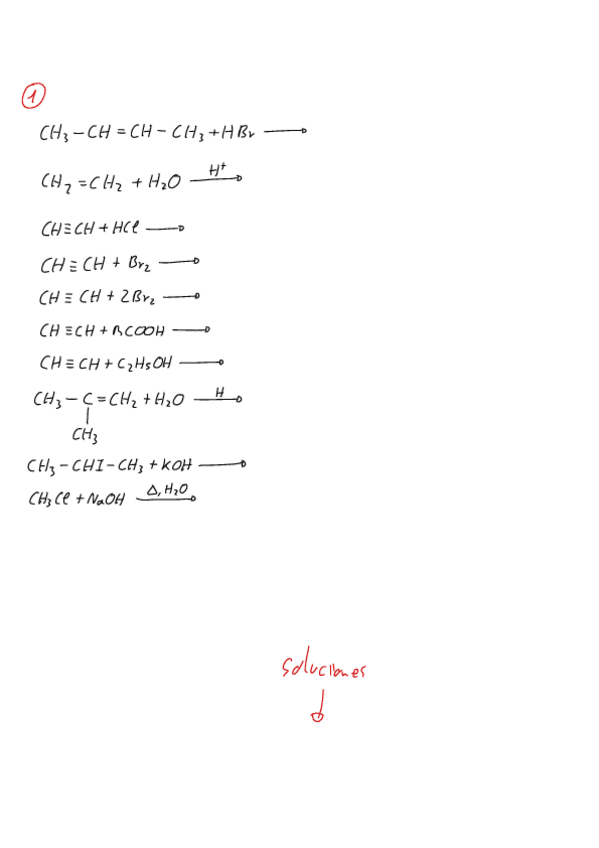 1
CH₃ – CH = CH – CH₃ + HBr ⟶
CH₂ = CH₂ + H₂O ⟶ H⁺
CH ≡ CH + HCl ⟶
CH ≡ CH + Br₂ ⟶
CH ≡ CH + 2Br₂ ⟶
CH ≡ CH + RCOOH ⟶
CH ≡ CH + C₂H₅OH ⟶
CH₃ – C = CH₂ + H₂O ⟶ H
CH₃
CH₃ – CHI – CH₃ + KOH ⟶
CH₃Cl + NaOH ⟶ Δ, H₂O
Soluciones